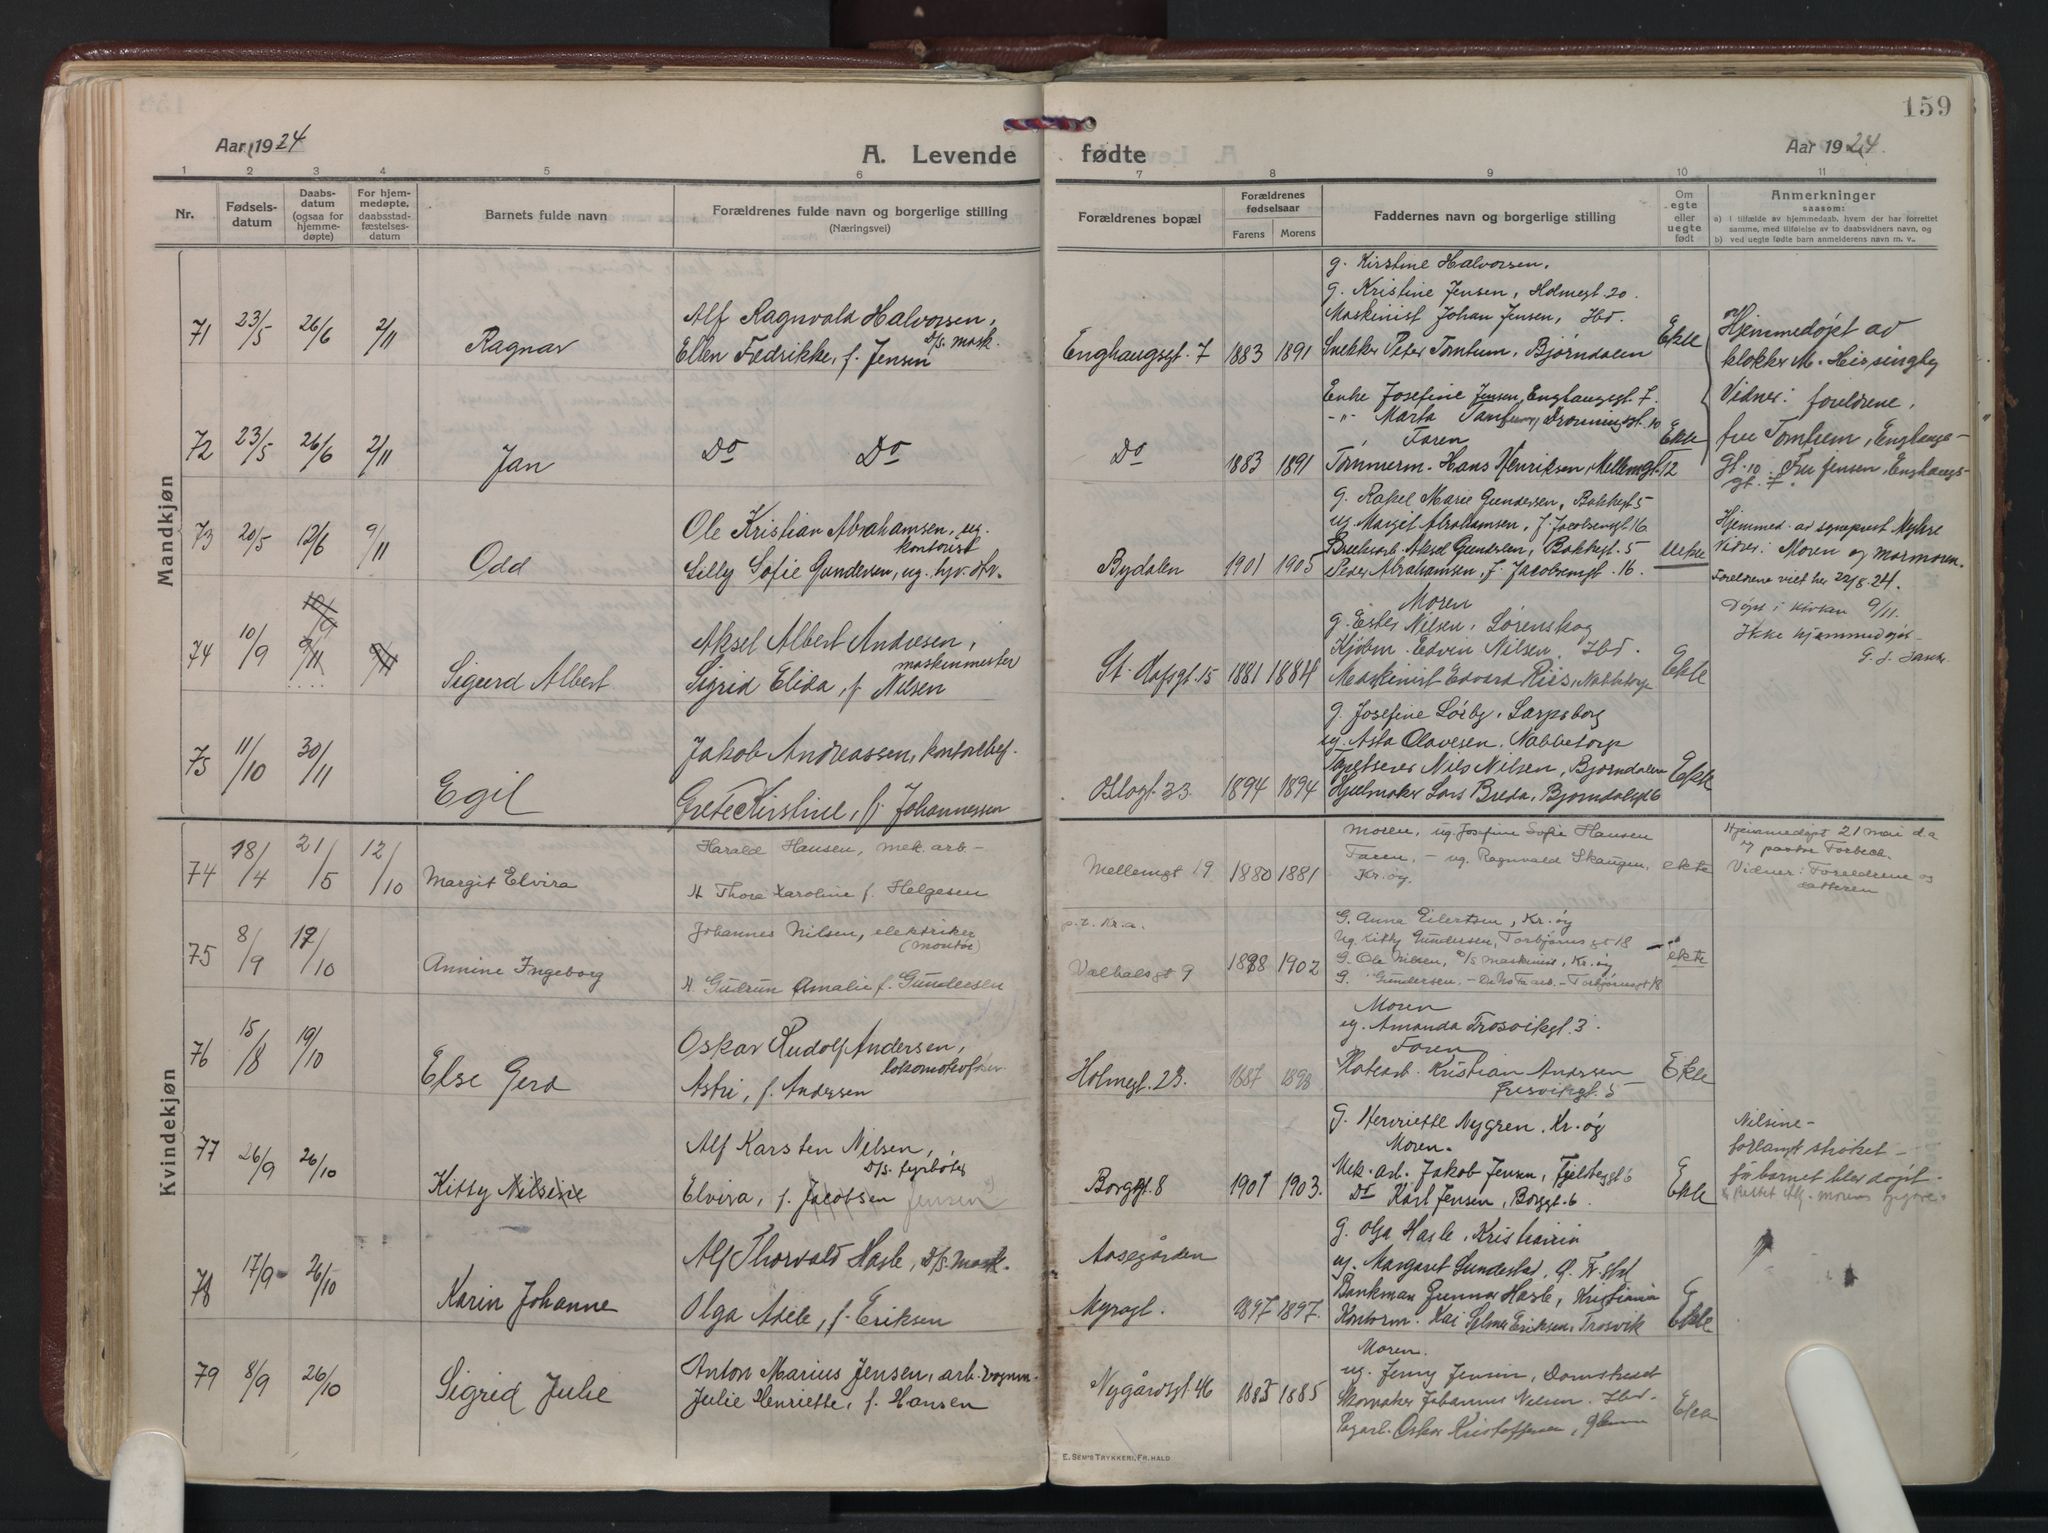 159
Aar 1924
A. Levende
fødte
Aar 1924.
1 2 3 4 5 6
7 8 9 10 11
Nr.
Fødsels-
datum
Daabs-
datum
(ogsaa for
hjemme-
døpte)
For hjem-
medøpte,
daabsstad-
fæstelses-
datum
Barnets fulde navn
Forældrenes fulde navn og borgerlige stilling
(Næringsvei)
Forældrenes bopæl
Forældrenes
fødselsaar
Farens Morens
Faddernes navn og borgerlige stilling
Om
egte
eller
uegte
født
Anmerkninger
saasom:
a) I tilfælde av hjemmedaab, hvem der har forrettet
samme, med tilføielse av to daabsvidners navn, og
b) ved uegte fødte barn anmelderens navn m. v.,
Mandkjøn
71 23/5 26/6 2/11 Ragnar
Alf Ragnvald Halvorsen,
D/S. mask.
Ellen Fredrikke, f. Jensen
Enghaugsgt. 7 1883 1891
g. Kirstine Halvorsen.
g. Kristine Jensen, Holmegt 20.
Maskinist Johan Jensen, Ibd.
Snekker Peter Tomtum, Bjørndalen
Ekte
Hjemmedøpt av
klokker M. Hersingby
Vidner: foreldrene,
fru Tomtum, Enghaugs-
gt. 10. Fru Jensen, Enghaugs-
gt. 7.
72 23/5 26/6 2/11 Jan
Do Do
Do 1883 1891
Enke Josefine Jensen, Enghaugsgt. 7.
-"- Marta Dronningst. 10
Faren
Tømmerm. Hans Henriksen, Mellemgt. 12
Ekte
73 20/5 12/6 9/11 Odd
Ole Kristian Abrahamsen, ug.
kontorist
Lilly Sofie Gundersen, ug. hjv. dtr.
Bydalen 1901 1905
g. Rakel Marie Gundersen, Bakkegt 5
ug. Margit Abrahamsen, J. Jacobsensgt 16
Aksel Gundersen, Bakkegt. 5
Peder Abrahamsen, J. Jacobsensgt. 16.
uekte
Hjemmed. av sogneprest Myhre
Vidner: Moren og mormoren.
Foreldrene viet her 22/8. 24.
74 10/9 9/11 9/11 Sigurd Albert
Aksel Albert Andresen,
maskinmester
Sigrid Elida, f. Nilsen
St. Olafsgt. 15 1881 1884
Moren
g. Ester Nilsen, Lørenskog
Kjøbm. Edvin Nilsen, Ibd.
Maskinist Edvard Riis, Nabbetorp
Ekte
Døpt i kirken 9/11.
Ikke hjemmedøpt -
75 11/10 30/11 Egil
Jakob Andreassen, kontorbet.
Grete Kirstine, f. Johannessen
Oslogt. 23. 1894 1894
g. Josefine Sørby, Sarpsborg
ug. Asta Olavesen, Nabbetorp
Tapetserer Nils Nilsen, Bjørndalen
Hjulmaker Lars Breda, Bjørndalsgt 6
Ekte
Kvindekjøn
74 18/4 21/5 12/10 Margit Elvira
Harald Hansen, mek. arb. -
H Thora Karoline f. Helgesen
Mellemgt 19 1880 1881
Moren, ug. Josefine Sofie Hansen
Faren, - ug. Ragnvald Skaugen,
Kr.øy.
ekte
Hjemmedøpt 21 mai d. a
av pastor Torbech.
Vidner: Foreldrene og
datteren
75 8/9 19/10 Annine Ingeborg
Johannes Nilsen, elektriker
(montør)
H Gudrun Amalie f. Gundersen
p.t. Kr.a.
Valhalsgt 9 1898 1902
G. Anna Eilertsen, Kr.øy
Ug. Kitty Gundersen, Torbjørns gt 18
G. Ole Nilsen, D/S maskinist, Kr.øy
G. Gundersen, - De No Fa arb. - Torbjørnsgt 18
ekte
76 15/8 19/10 Else Gerd
Oskar Rudolf Andersen,
Astri, f. Andersen
Holmegt. 23. 1887 1898
Moren
ug. Amanda Trosvikgt. 3.
Faren
Platearb. Kristian Andersen
Ekte
77 26/9 26/10 Kitty Nilsine
Alf Karsten Nilsen,
D/S. fyrbøter
Elvira, f. Jacobsen Jensen
Borggt. 8 1901 1903.
g. Henriette Nygren, Kr.øy
Moren.
Mek. arb. Jakob Jensen, Fjeldbergt 6
Do Karl Jensen, Borggt. 6.
Ekte
Nilsine-
forlangt strøket -
før barnet blev døpt.
78 17/9 26/10 Karin Johanne
Alf Thorvald Hasle, D/S. mask.
Olga Adele, f. Eriksen
Aasegården
Myragt. 1897 1897.
g. Olga Hasle, Kristiania
ug. Margaret Sundestad, G. Fr.stad
Bankman Gunnar Hasle, Kristiania
Kontorm. Kai Selmer Eriksen, Trosvik
Ekte
79 8/9 26/10 Sigrid Julie
Anton Marius Jensen, arb. vognm.
Julie Henriette, f. Hansen
Nygårdsgt. 46 1885 1885
Moren.
ug. Jenny Jensen, Domstedet
Skomaker Johannes Nilsen. Ibd.
Sagarb. Oskar Kristoffersen, Glemm
Ekte
E. SEM'S TRYKKERI, FR. HALD